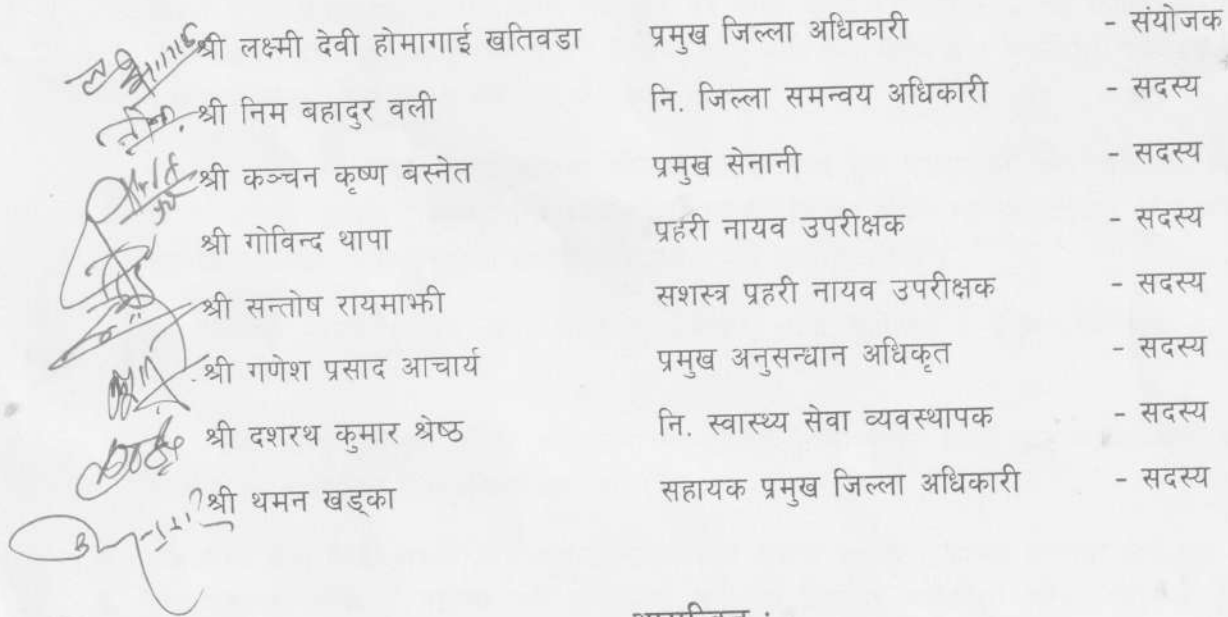 श्री लक्ष्मी देवी होमागाई खतिवडा प्रमुख जिल्ला अधिकारी - संयोजक
श्री निम बहादुर वली नि. जिल्ला समन्वय अधिकारी - सदस्य
श्री कञ्चन कृष्ण बस्नेत प्रमुख सेनानी - सदस्य
श्री गोविन्द थापा प्रहरी नायव उपरीक्षक - सदस्य
श्री सन्तोष रायमाझी सशस्त्र प्रहरी नायव उपरीक्षक - सदस्य
श्री गणेश प्रसाद आचार्य प्रमुख अनुसन्धान अधिकृत - सदस्य
श्री दशरथ कुमार श्रेष्ठ नि. स्वास्थ्य सेवा व्यवस्थापक - सदस्य
श्री थमन खड्का सहायक प्रमुख जिल्ला अधिकारी - सदस्य